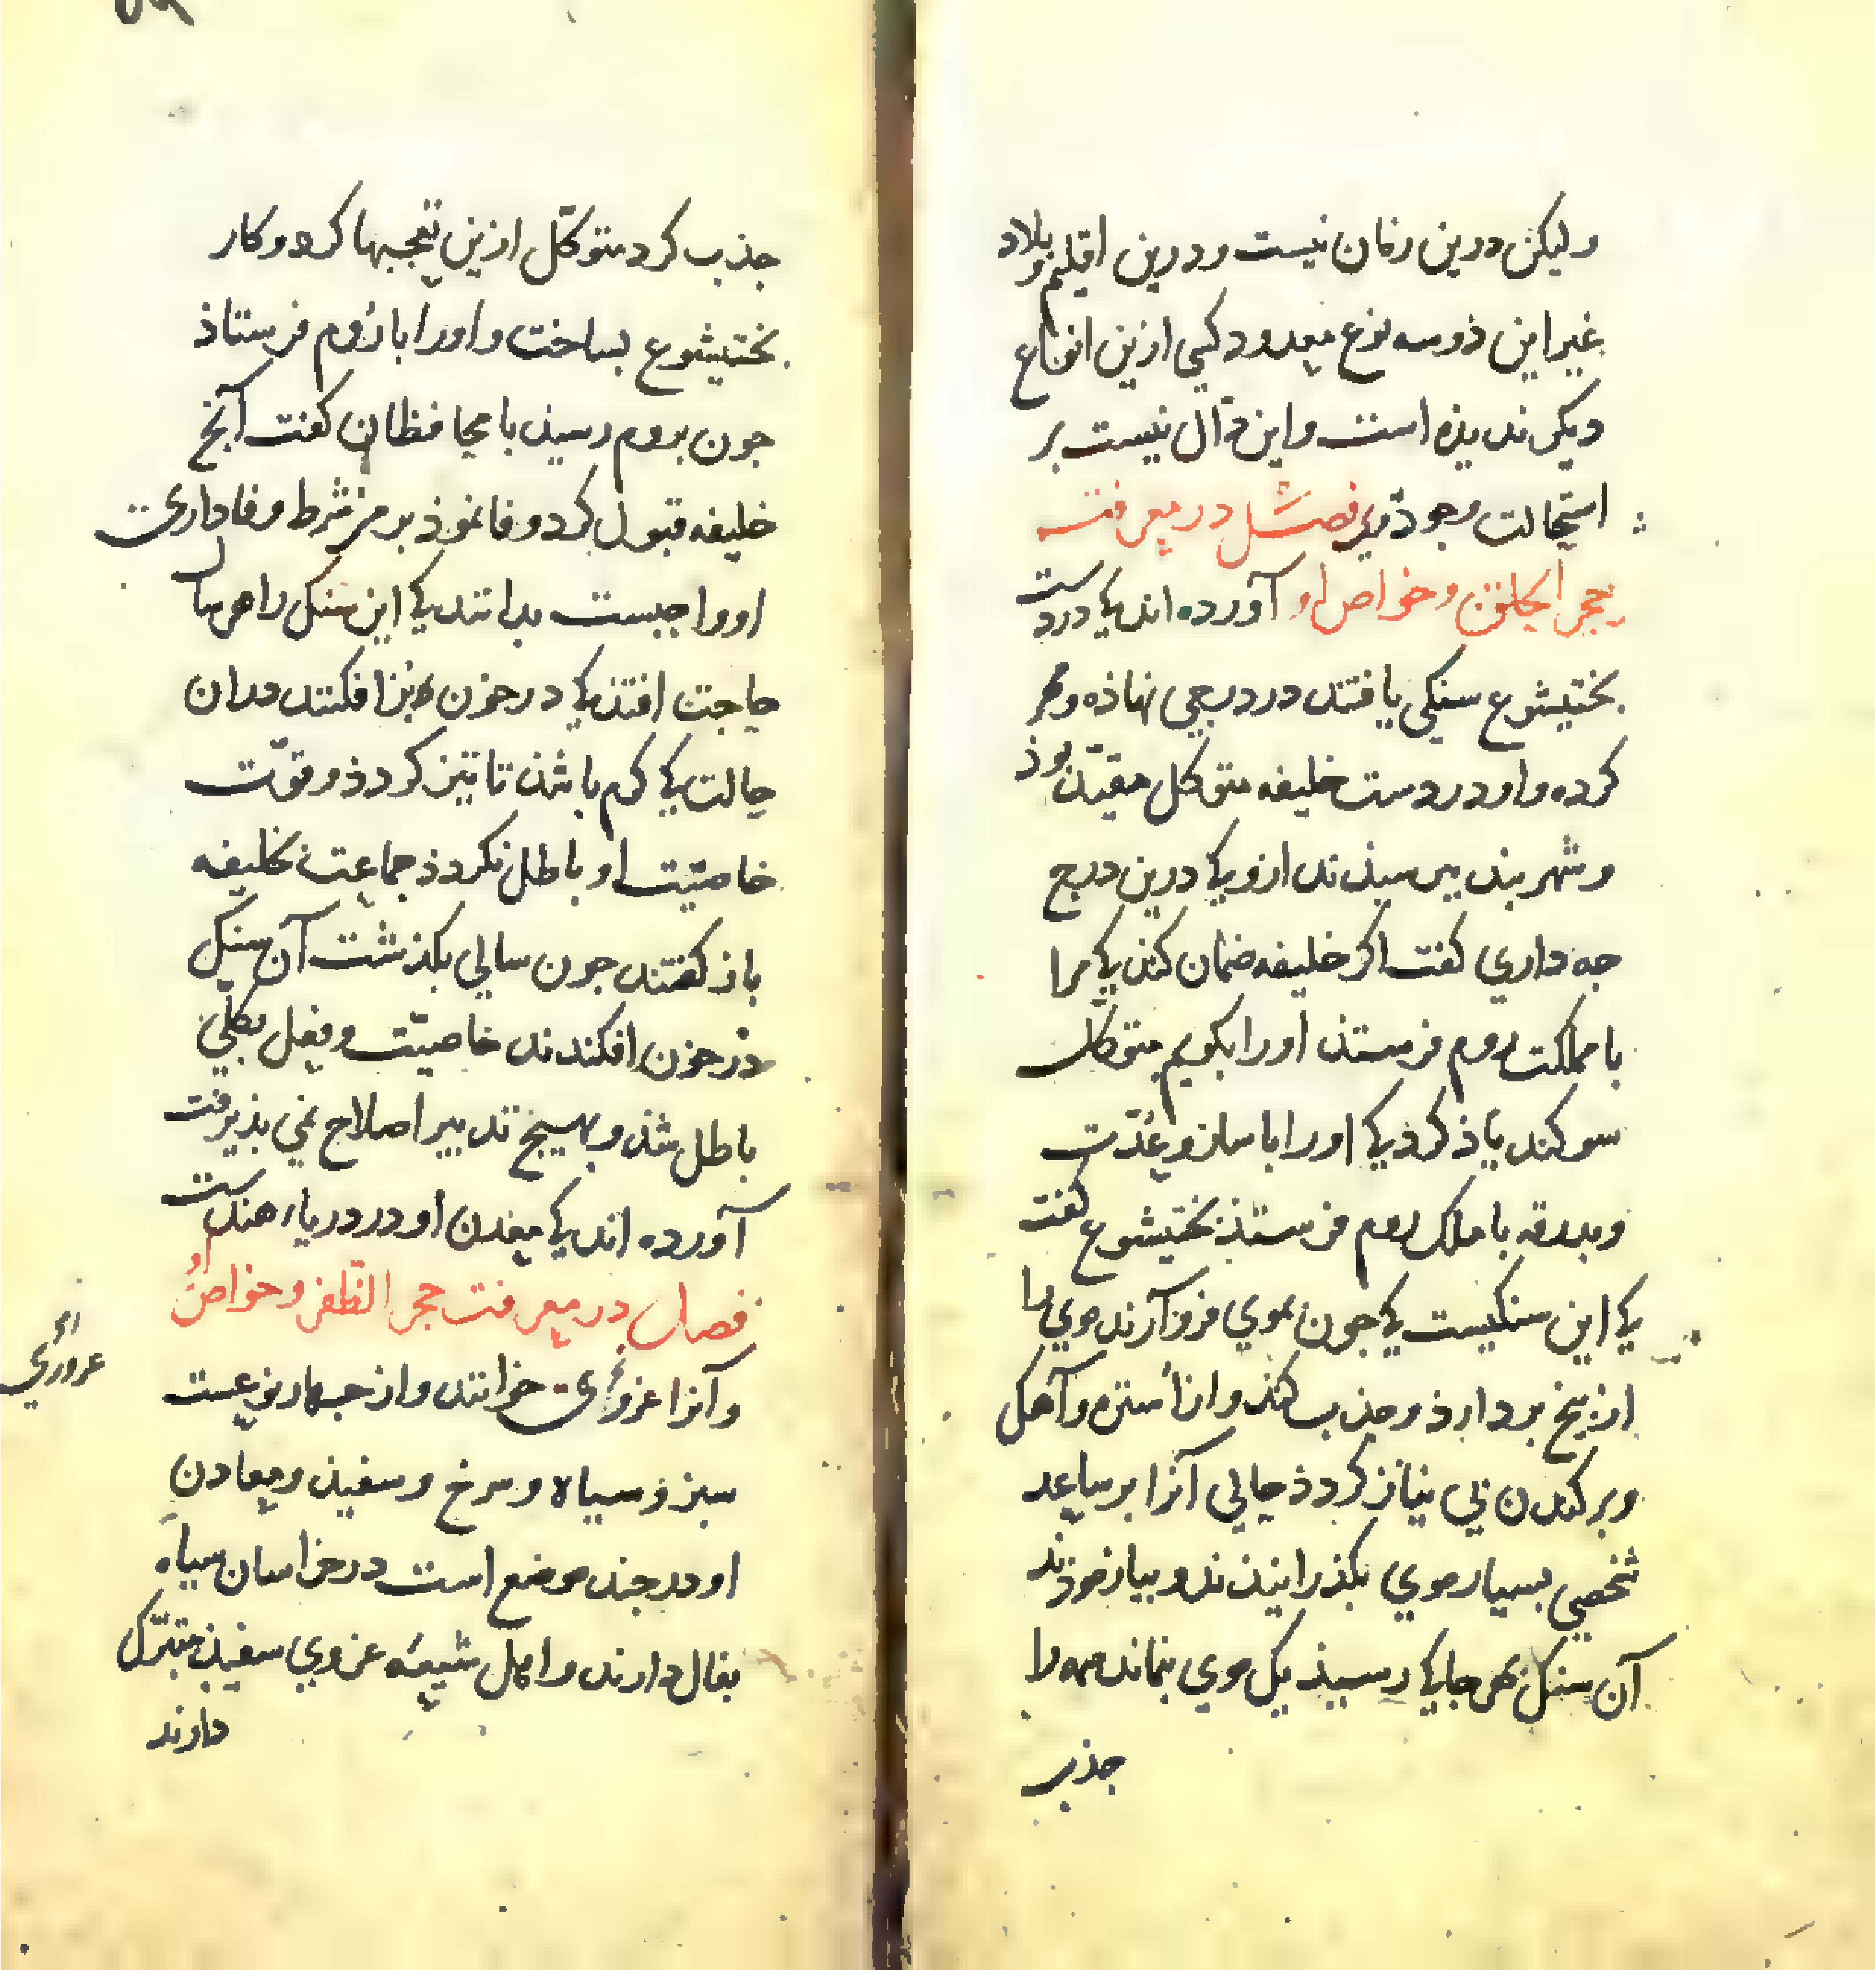 ولیکن درین زمان نیست ودرین اقلیم وبلاد
غیر این ذو سه نوع معدود کسی ازین انواع
دیکر ندیذه است واین دال نیست بر
استحالت وجود دیکر فصل در معرفت
حجر الحالق وخواص او آورده اند کی در دست
بختیشوع سنکی یافتند در درجی نهاذه ومهر
کرده واو در دست خلیفه متوکل مقید بوذ
وشهر بند پرسیذند ازو کی درین درج
جه داری کفت اکر خلیفه ضمان کند کی مرا
با مملکت روم فرستذ او را بکویم متوکل
سوکند یاذ کرد کی او را با ساز وعدت
وبدرقه با ملک روم فرستذ بختیشوع کفت
کی این سنکیست کی جون بموی فروذ آرند موی را
از بیخ بردارذ وجذب کند واز استره وآهک
وبرکندن بی نیاز کردذ حالی آنرا بر ساعد
شخصی بسیار موی بکذرانیذند وبیازموذند
آن سنک بهر جای کی رسیذ یک موی نماند همه را
جذب
جذب کرد متوکل ازین تعجبها کرد وکار
بختیشوع بساخت واورا با روم فرستاذ
جون بروم رسیذ با محافظان کفت آنج
خلیفه قبول کرد وفا نموذ بر من شرط وفاداری
او واجبست بدانند کی این سنک را هر سال
حاجت افتذ کی در خون بز افکنند دران
حالت کی کرم باشذ تا تیز کردذ وقوت
خاصیت او باطل نکردذ جماعت بخلیفه
باز کفتند جون سالی بکذشت آن سنک
در خون افکندند خاصیت وفعل بکلی
باطل شذ وبهیج تدبیر اصلاح نمی بذیرفت
آورده اند کی معدن او در دریاء هندست
فصل در معرفت حجر الظفر وخواص او
وآنرا عزوی خوانند واز جهار نوعست
سبز وسیاه وسرخ وسفیذ ومعادن
او در جند موضع است در خراسان سیاه
بفال دارند واهل شیعه عزوی سفیذ متبرک
دارند